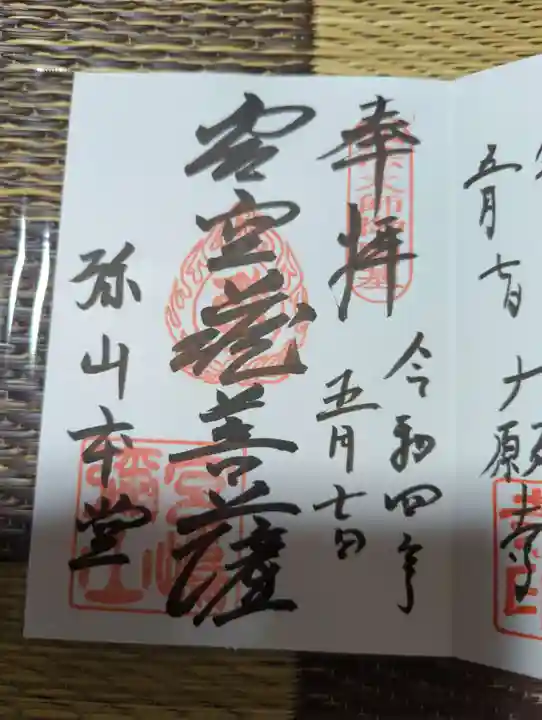 五月七日
大願寺
奉拝
令和四年
五月七日
虚空蔵菩薩
弥山本堂
宮嶋
弥山